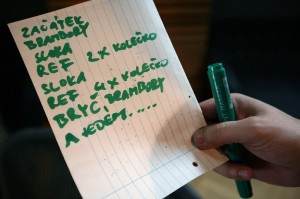 ZAČÁTEK
BRAMBORY
SLOKA
REF 2X KOLEČKO
SLOKA
REF 4X KOLEČKO
BRYČ, BRAMBORY
A JEDEM.....